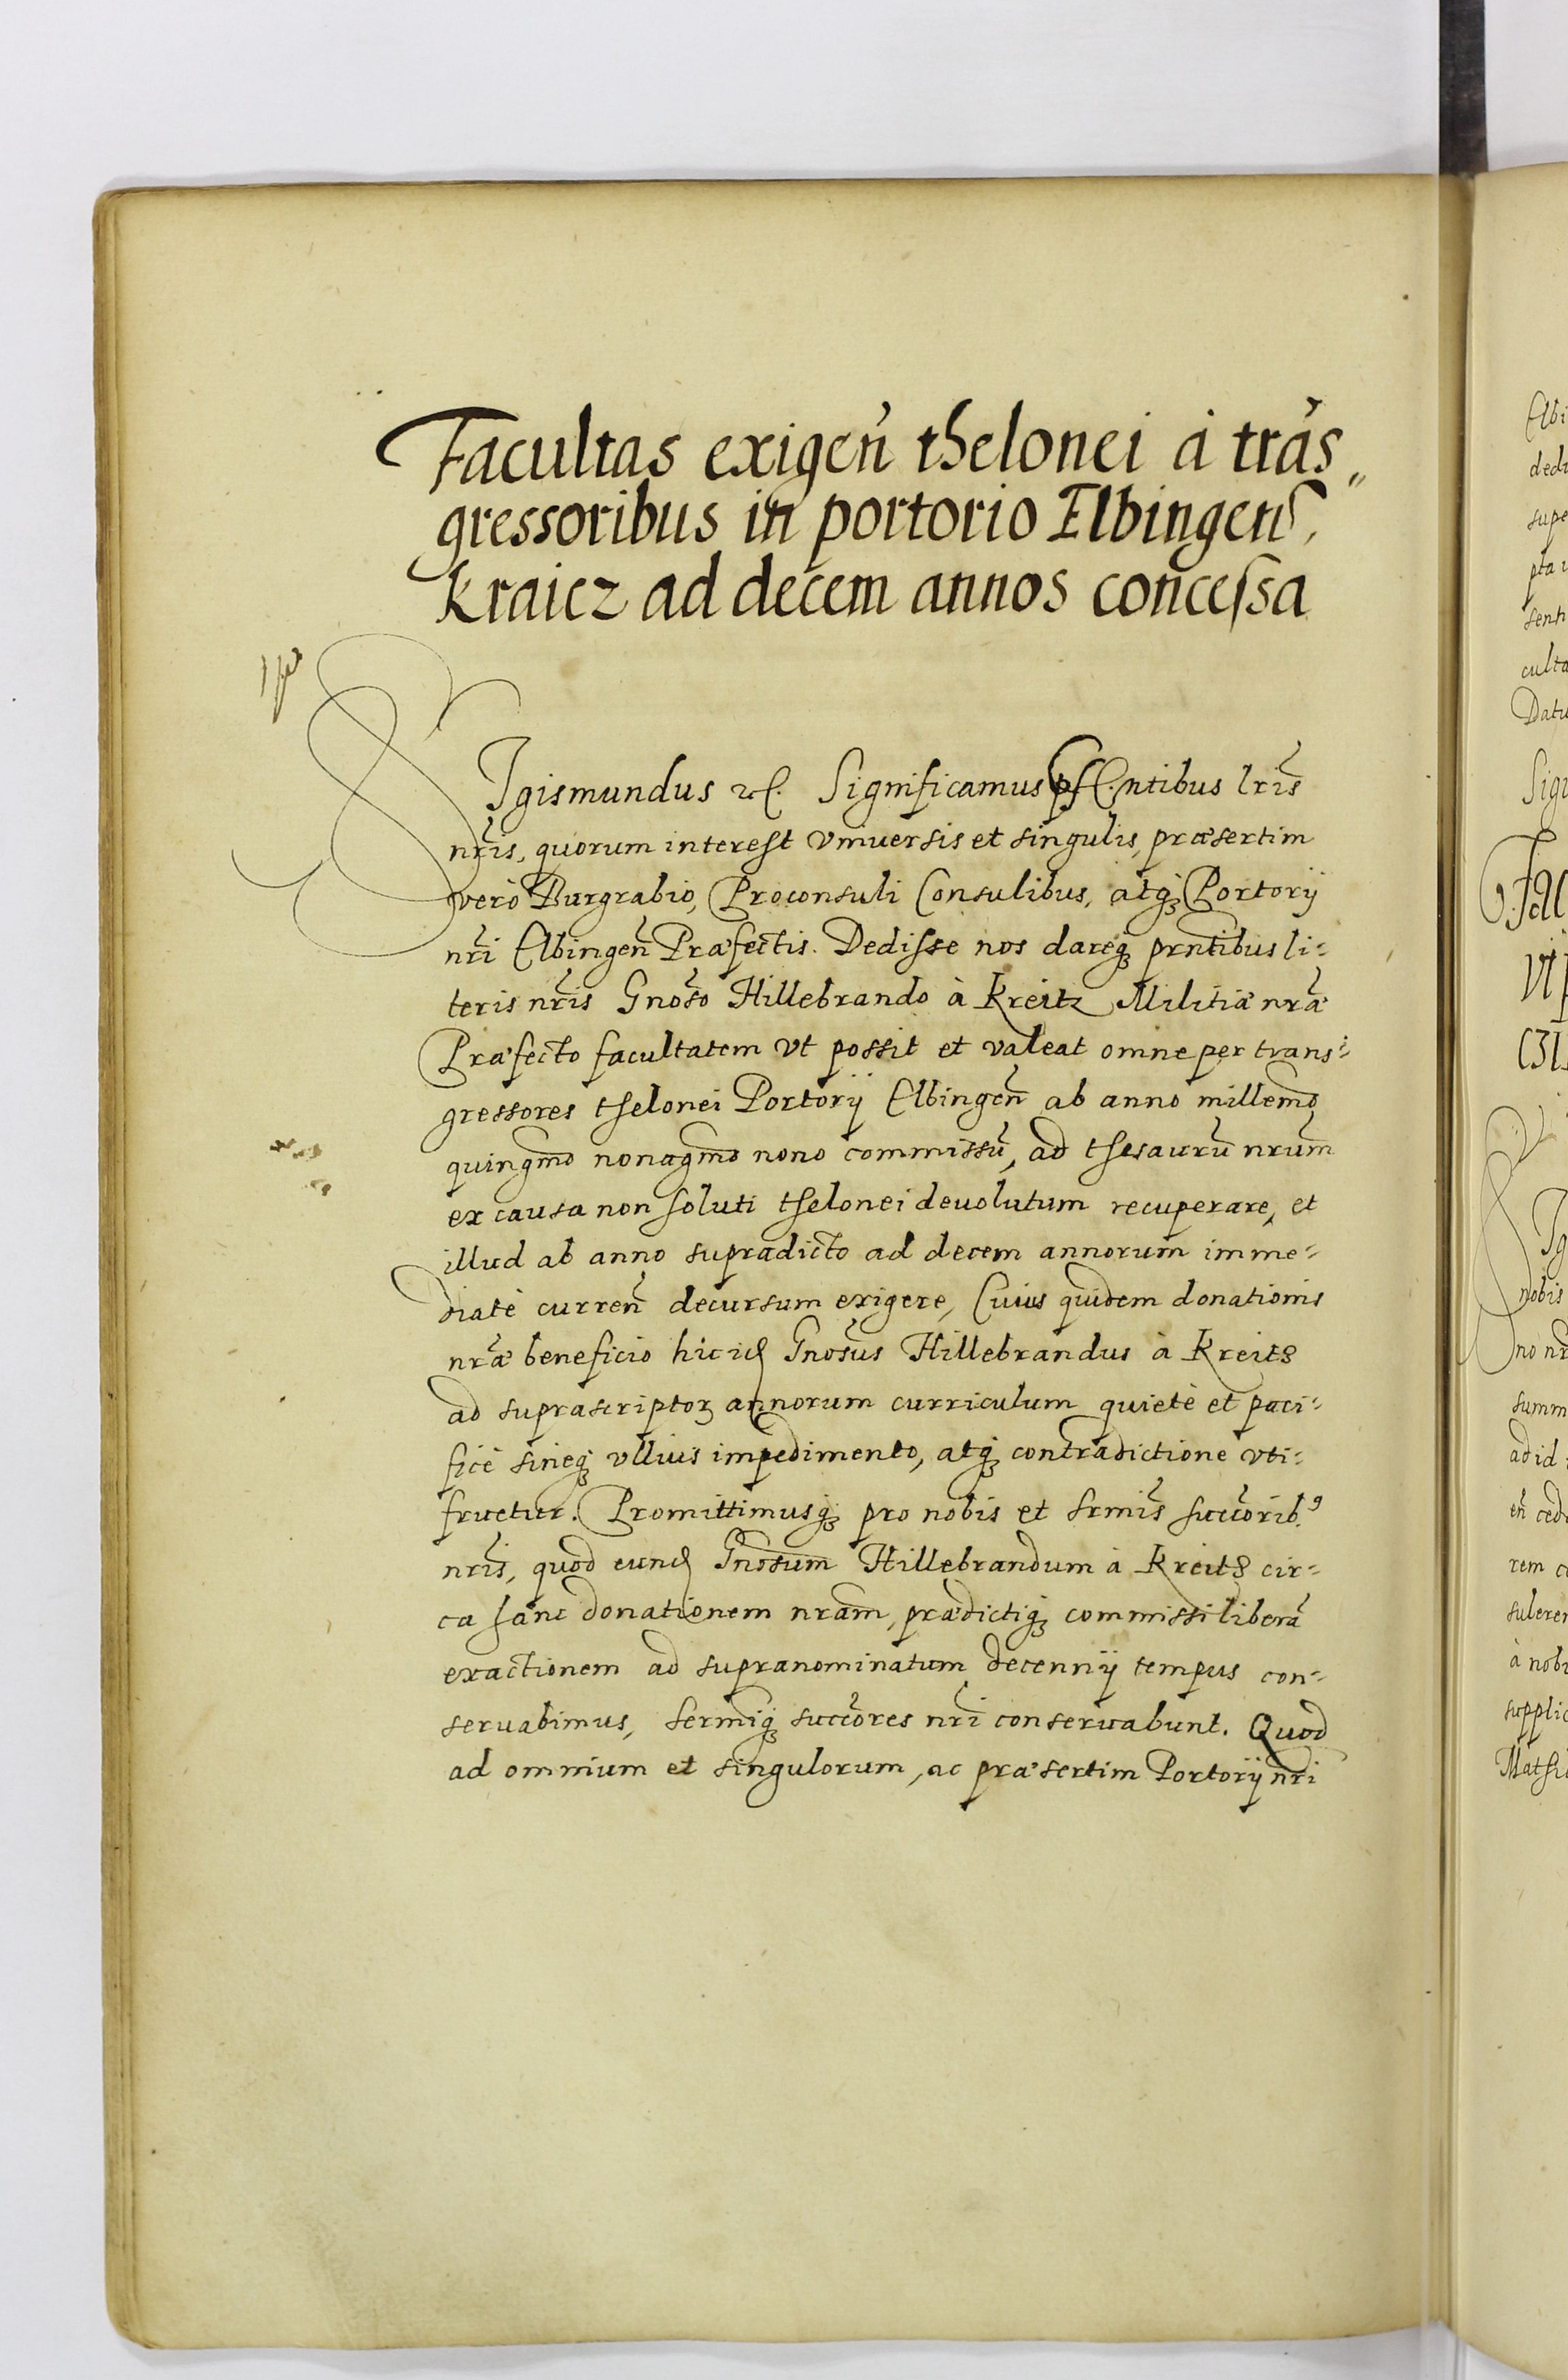 Facultas exigen̄ thelonei à trās„
gressoribus in portorio Elbingens,
Kraicz ad decem annos concessa
Sigismundus etc. Significamus pntibus lr̄is
nr̄is, quorum interest vniuersis et singulis, præsertim
verò Burgrabio, Proconsuli Consulibus, atq₃ Portorij
nr̄i Elbingen̄ Præfectis. Dedisse nos dareq₃ prn̄tibus li=
teris nr̄is Gnoso Hillebrando à Kreitz Militiæ nr̄æ
Præfecto facultatem vt possit et valeat omne per trans=
gressores thelonei Portorij Elbingen̄ ab anno millem̄o
quingm̄o nonagm̄o nono commissū, ad thesaurū nrum̄
ex causa non soluti thelonei deuolutum recuperare, et
illud ab anno supradicto ad decem annorum imme=
diatè curren̄ decursum exigere, Cuius quidem donationis
nr̄æ beneficio hic id Gnosus Hillebrandus à Kreitz
ad suprascriptoꝝ annorum curriculum quietè et paci=
ficè sineq₃ vllius impedimento, atq₃ contradictione vti=
fruetur. Promittimusq₃ pro nobis et srmis̄ succorib⁹
nr̄is, quod eund Gnosum Hillebrandum à Kreitz cir=
ca hanc donationem nram̄, prædictiq₃ commissi liberā
exactionem ad supranominatum decennij tempus con=
seruabimus, sermiq₃ succores nr̄i conseruabunt. Quod
ad omnium et singulorum, ac præsertim Portorij nr̄i
Elbi
dedi
supe
pta
senti
culta
Datu
Sigi
Fac
nobis
no nr
summ
ad id
en̄ ced
rem c
sulerer
à nobi
supplic
Mathi